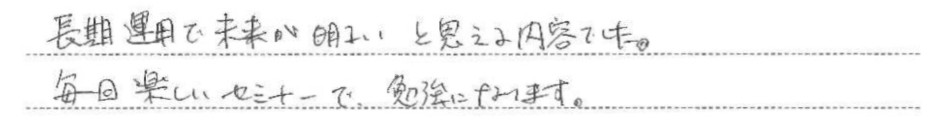 長期運用で未来が明るいと思える内容でした。
毎回楽しいセミナーで、勉強になります。